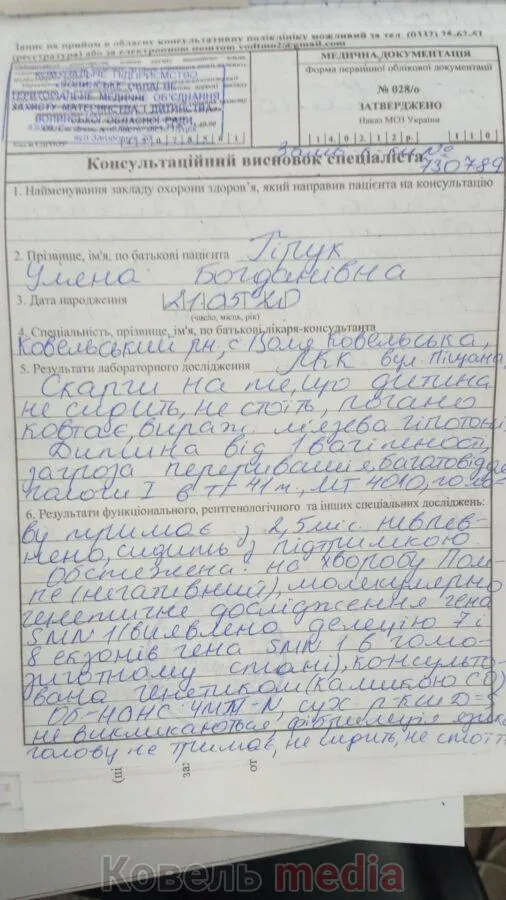 Запис на прийом в обласну консультативну поліклініку можливий за тел. (0332)
(реєстратура) або за електронною поштою vodtmo2@gmail.com
КОМУНАЛЬНЕ ПІДПРИЄМСТВО
ВОЛИНСЬКЕ ОБЛАСНЕ
ТЕРИТОРІАЛЬНЕ МЕДИЧНЕ ОБ'ЄДНАННЯ
ЗАХИСТУ МАТЕРИНСТВА І ДИТИНСТВА
ВОЛИНСЬКОЇ ОБЛАСНОЇ РАДИ
МЕДИЧНА ДОКУМЕНТАЦІЯ
Форма первинної облікової документації
№ 028/о
ЗАТВЕРДЖЕНО
Наказ МОЗ України
1 4 . 0 2 . 1 2 р. 1 1 0
Консультаційний висновок спеціаліста
730789
1. Найменування закладу охорони здоров'я, який направив пацієнта на консультацію
2. Прізвище, ім'я, по батькові пацієнта Гірук
Уляна Богданівна
3. Дата народження 21 05 20
(число, місяць, рік)
4. Спеціальність, прізвище, ім'я, по батькові лікаря-консультанта
Ковельський рн, с Воля Ковельська,
5. Результати лабораторного дослідження ЛКК вул. Піщана
Скарги на те, що дитина
не сидить, не стоїть, погано
ковтає, вираж. м'язева гіпотоні
Дитина від 1 вагітності,
загроза переривання, багатовід
пологи I в т/ 41 т, МТ 4010, голо
6. Результати функціонального, рентгенологічного та інших спеціальних досліджень:
ву тримає з 2,5 міс. невпев-
нено, сидить з підтримкою.
Обстежена: на хворобу Пом-
пе (негативний), молекулярно
генетичне дослідження гена
SMN 1 (виявлено делецію 7 і
8 екзонів гена SMN 1 в гомо-
зиготному стані), консульто-
вана генетиком
Об-но НС: ЧМН-N сух. р-кси D=S
не викликаються, фібриляція язика
голову не тримає, не сидить, не стоїть
Ковель media